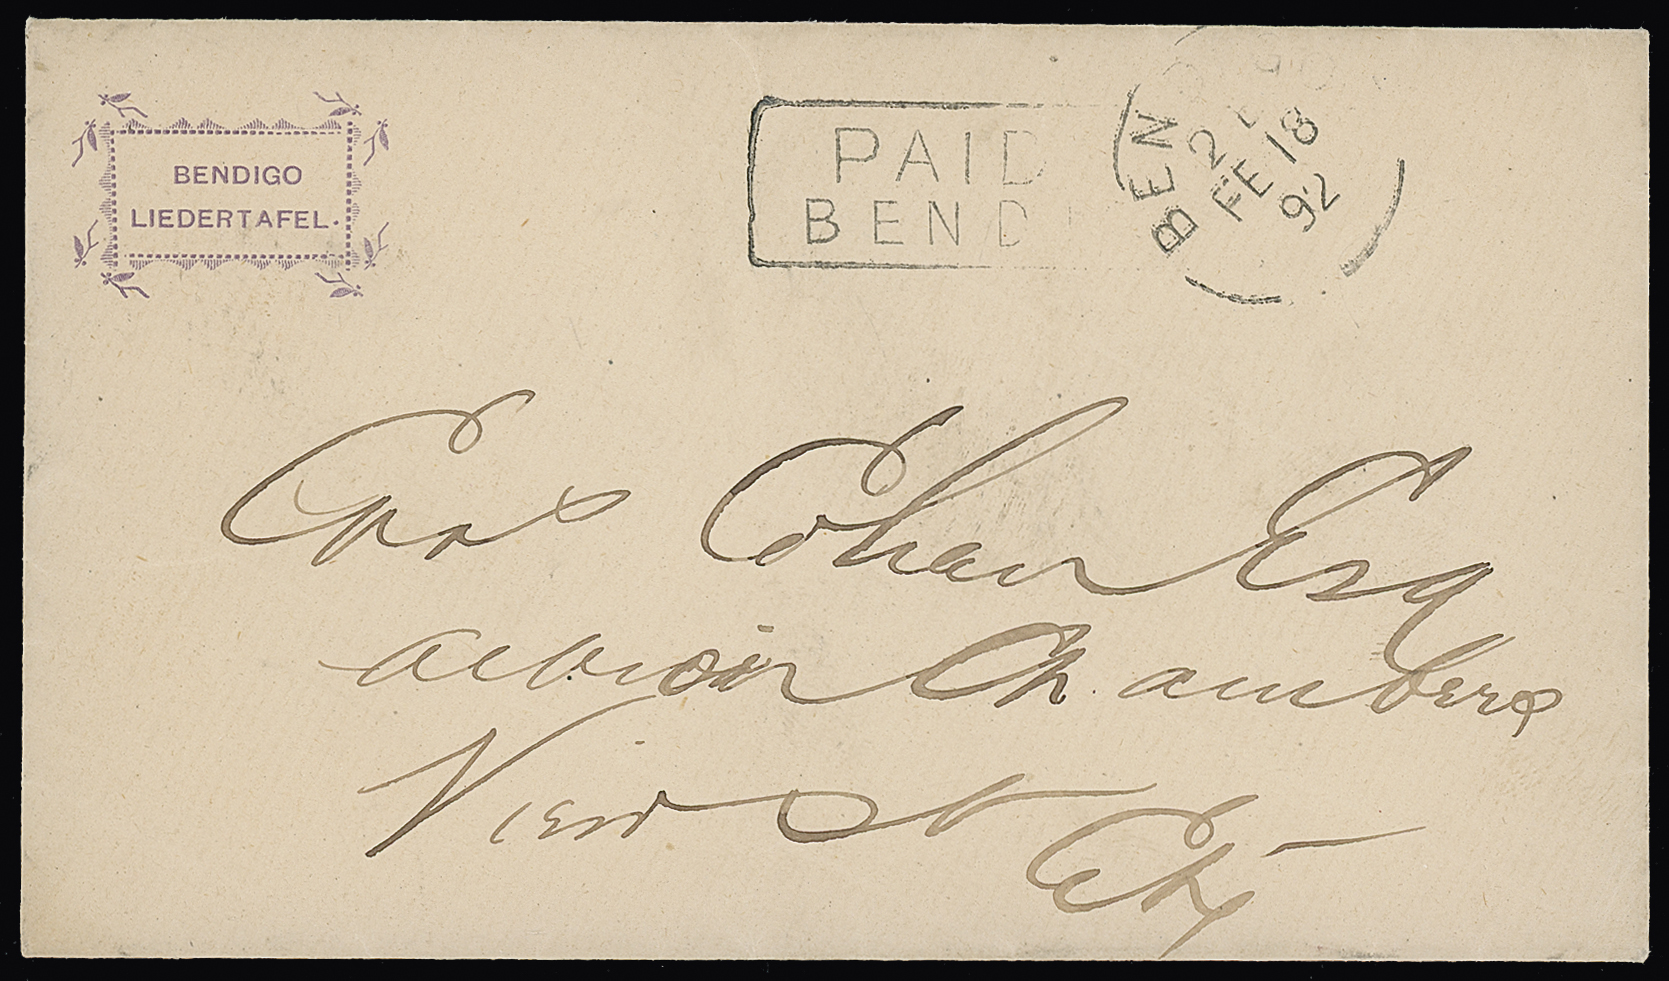 BENDIGO
LIEDERTAFEL.
PAID
BENDI
BENDIGO
2
FE 18
92
Cohen Esq
Albion Chambers
View St
City